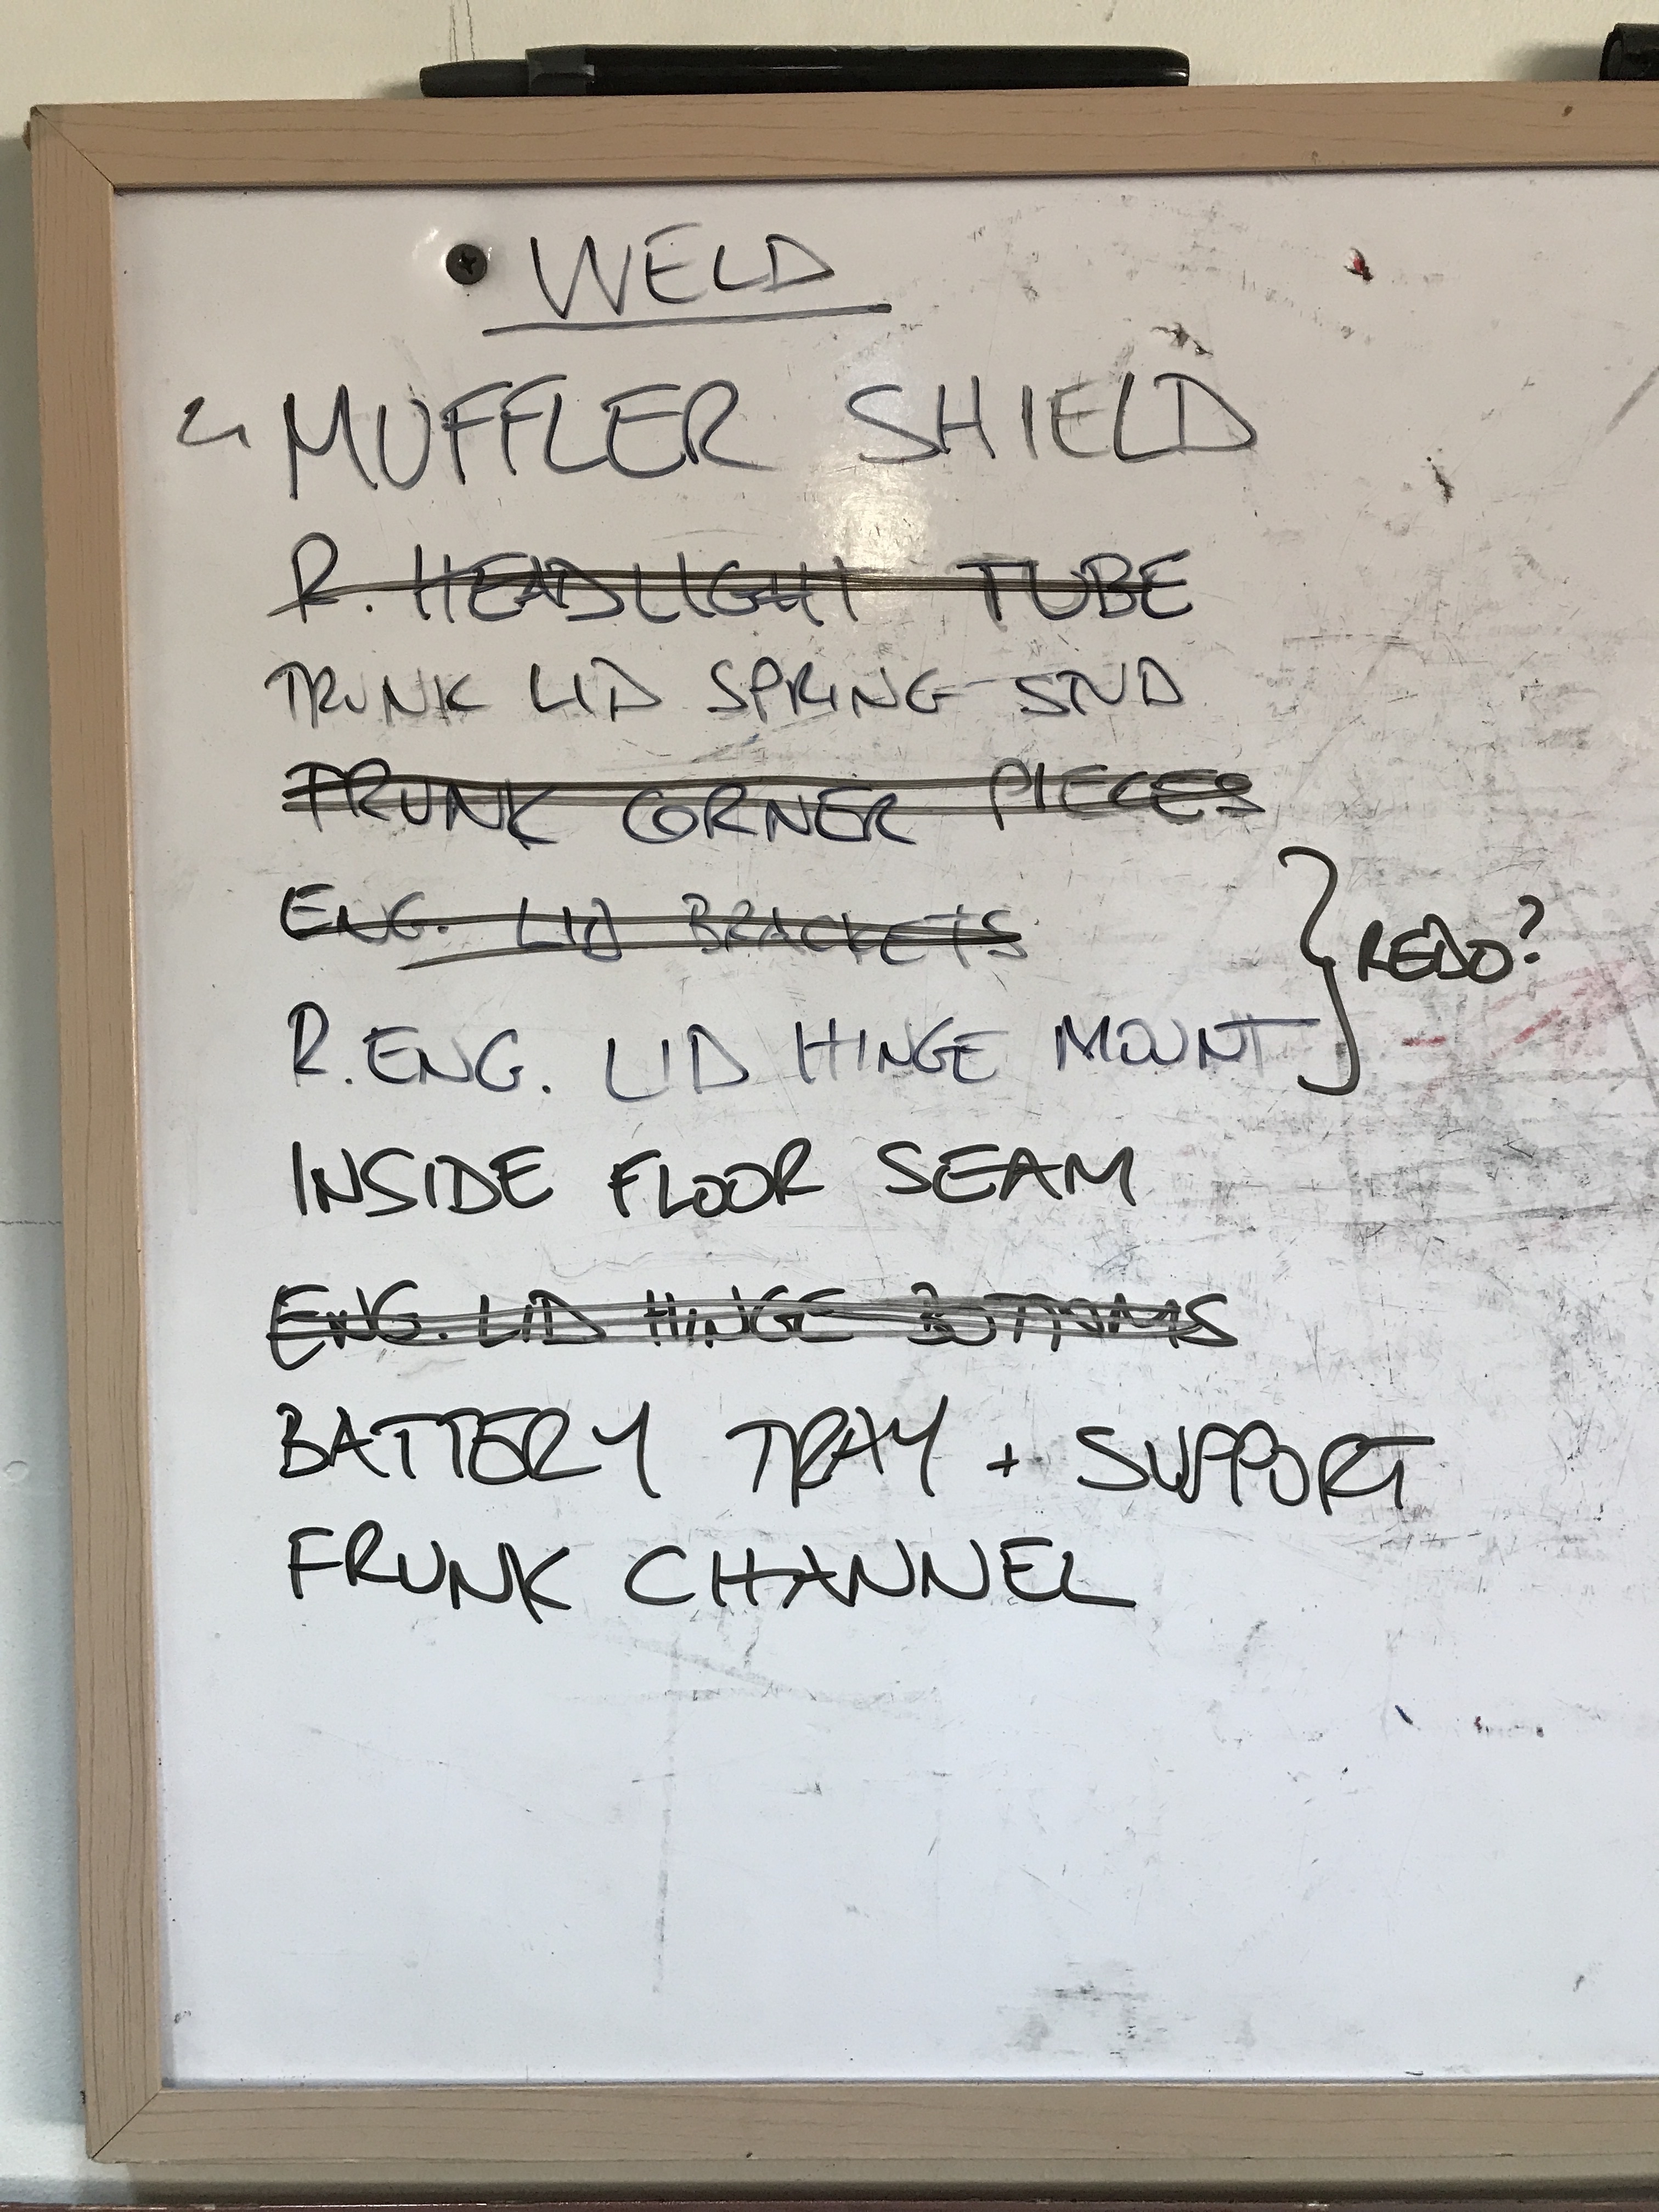 WELD
MUFFLER SHIELD
R. HEADLIGHT TUBE
TRUNK LID SPRING STUD
TRUNK CORNER PIECES
ENG. LID BRACKETS
REDO?
R. ENG. LID HINGE MOUNT
INSIDE FLOOR SEAM
ENG. LID HINGE BOTTOMS
BATTERY TRAY + SUPPORT
FRUNK CHANNEL